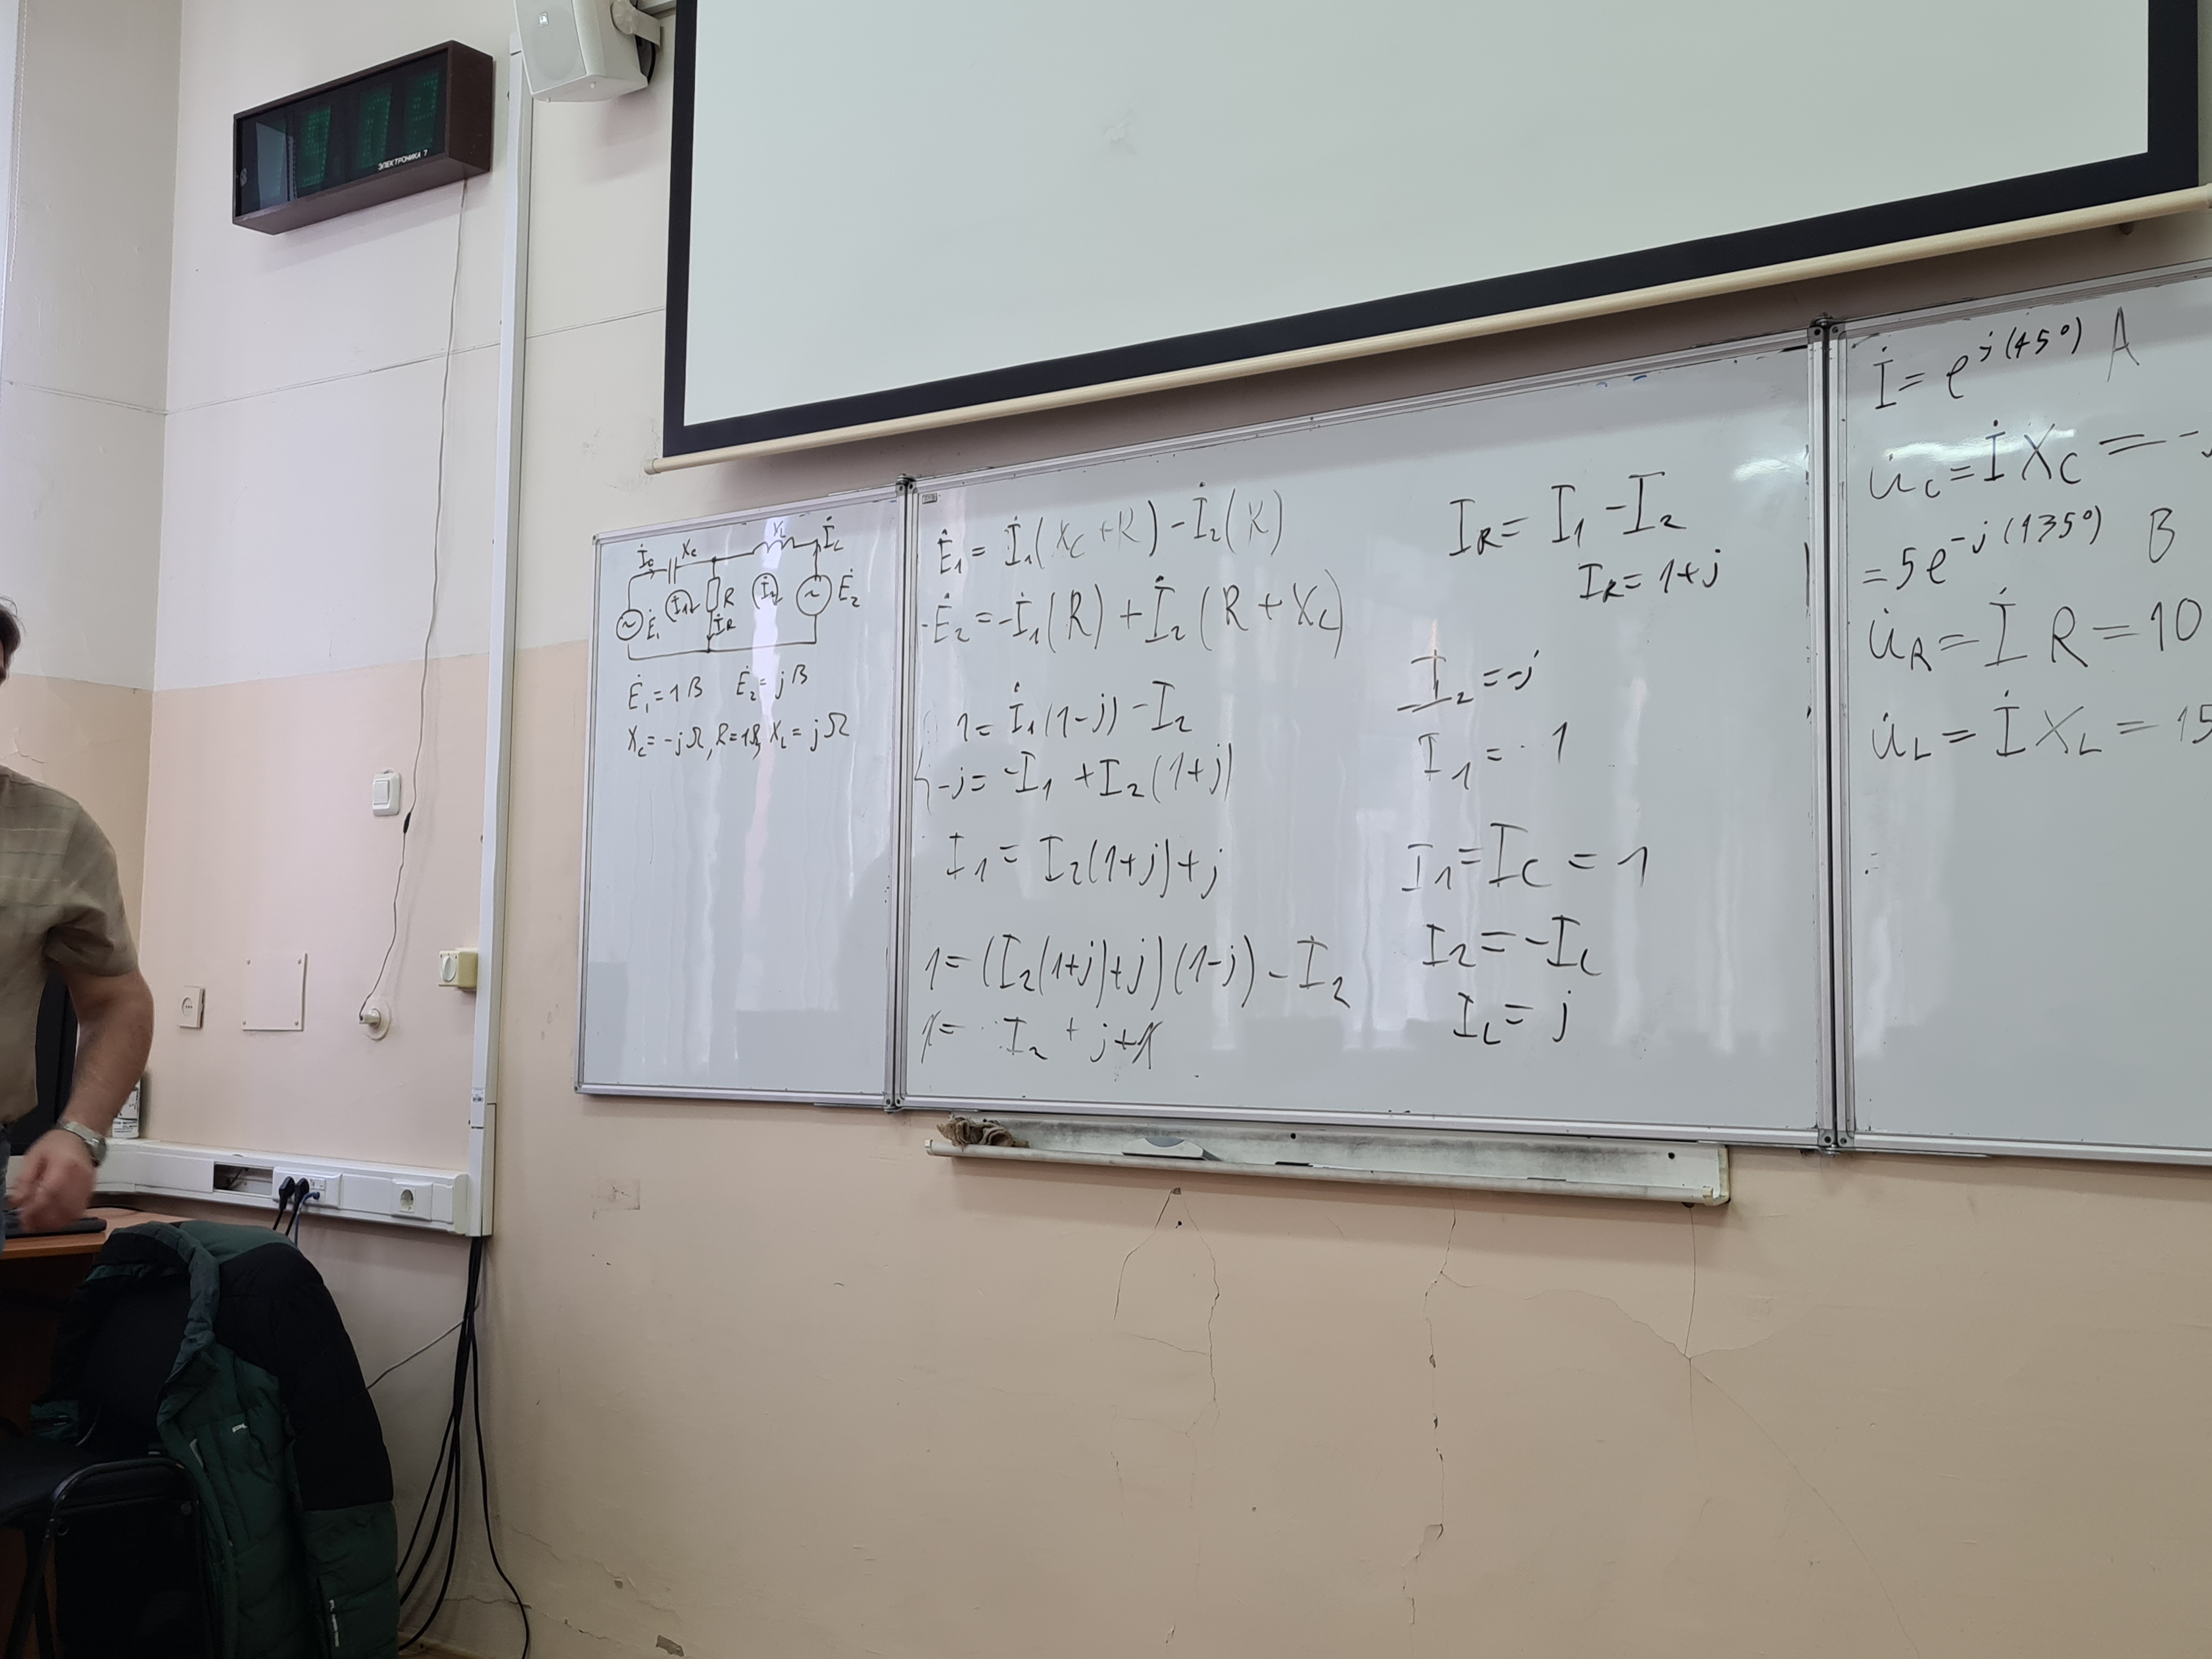 ЭЛЕКТРОНИКА 7
İ_C X_C X_L İ_L
Ė₁ İ₁ R İ₂ Ė₂
İ_R
Ė₁ = 1 В Ė₂ = j В
X_C = -j Ω, R = 1 Ω, X_L = j Ω
Ė₁ = İ₁(X_C + R) - İ₂(R)
-Ė₂ = -İ₁(R) + İ₂(R + X_L)
1 = İ₁(1-j) - I₂
-j = -I₁ + I₂(1+j)
I₁ = I₂(1+j)+j
1 = (I₂(1+j)+j)(1-j) - I₂
1 = I₂ + j + 1
I_R = I₁ - I₂
I_R = 1+j
I₂ = -j
I₁ = 1
I₁ = I_C = 1
I₂ = -I_L
I_L = j
İ = e^j(45°) A
U̇_C = İ X_C = -
= 5e^-j(135°) В
U̇_R = İ R = 10
U̇_L = İ X_L = 15
=